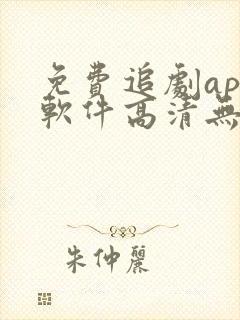 免費追劇ap
軟件高清無
朱仲麗